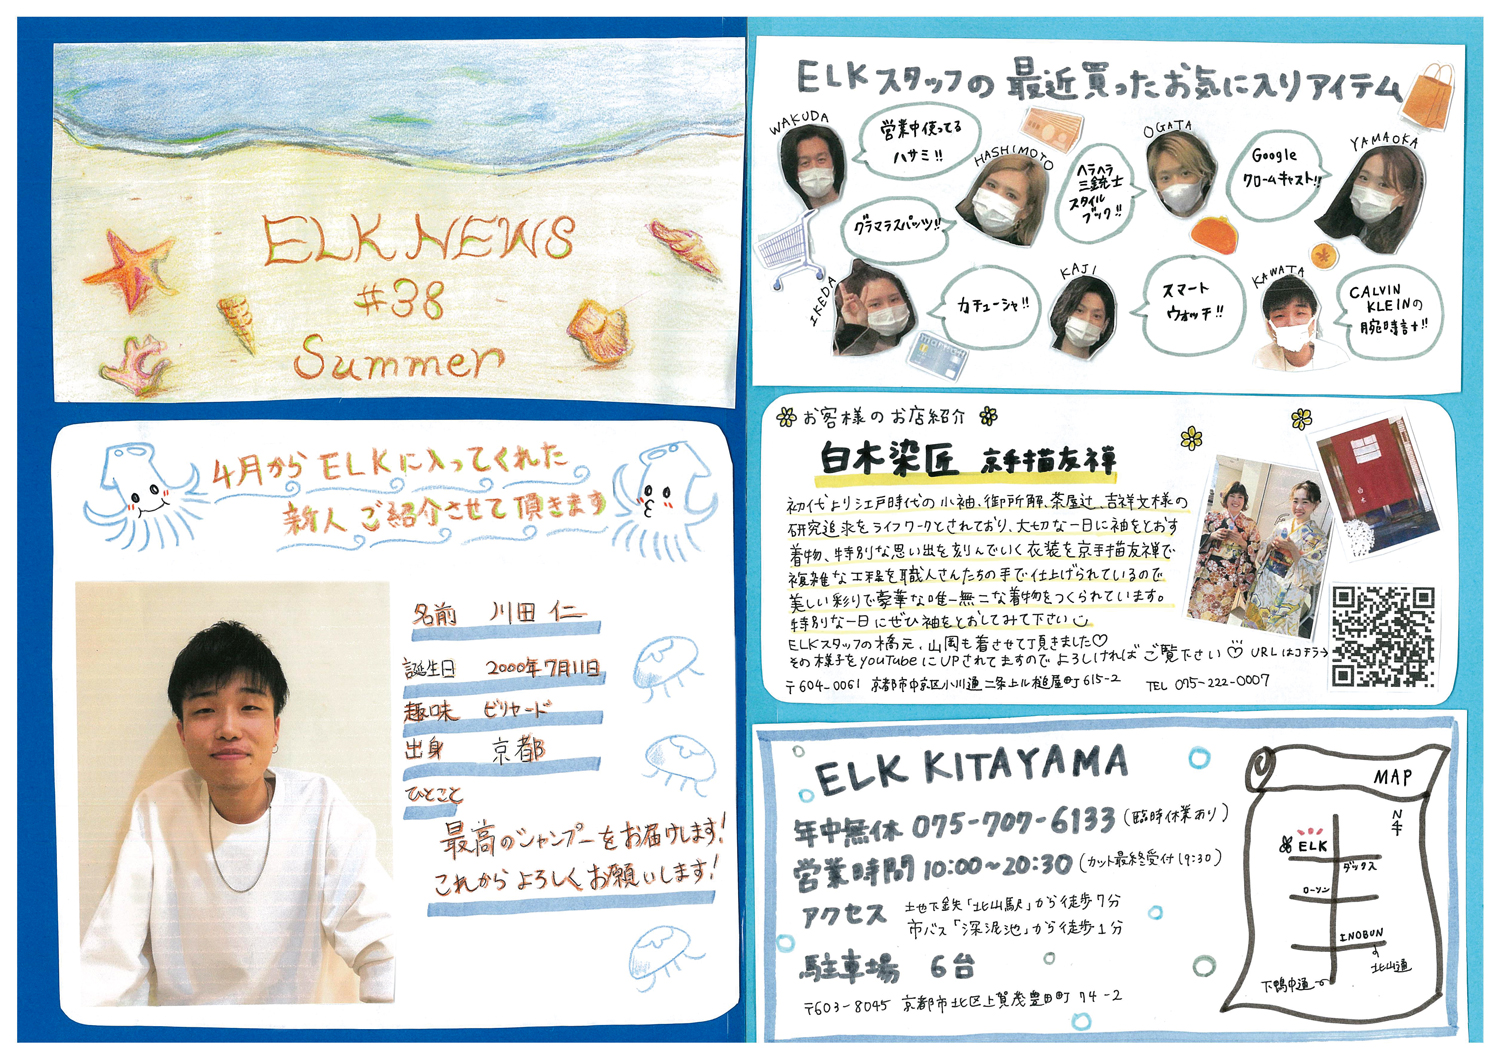 ELK NEWS
#38
Summer
4月から ELKに入ってくれた
新人 ご紹介させて頂きます
名前 川田 仁
誕生日 2000年7月11日
趣味 ビリヤード
出身 京都
ひとこと
最高のシャンプーをお届けします!
これからよろしくお願いします!
ELKスタッフの最近買ったお気に入りアイテム
WAKUDA
営業中使ってる
ハサミ!!
HASHIMOTO
グラマラスパッツ!!
OGATA
ヘラヘラ
三銃士
スタイル
ブック!!
YAMAOKA
Google
クロームキャスト!!
IKEDA
カチューシャ!!
KAJI
スマート
ウォッチ!!
KAWATA
CALVIN
KLEINの
腕時計!!
お客様のお店紹介
白木染匠 京手描友禅
初代より江戸時代の小袖、御所解、茶屋辻、吉祥文様の
研究追求をライフワークとされており、大切な一日に袖をとおす
着物、特別な思い出を刻んでいく衣装を京手描友禅で
複雑な工程を職人さんたちの手で仕上げられているので
美しい彩りで豪華な唯一無二な着物をつくられています。
特別な一日にぜひ袖をとおしてみて下さい
ELKスタッフの橋元、山岡も着させて頂きました♡
その様子をYouTubeにUPされてますのでよろしければご覧下さい♡ URLはコチラ→
〒604-0061 京都市中京区小川通二条上ル槌屋町615-2 TEL 075-222-0007
ELK KITAYAMA
年中無休 075-707-6133 (臨時休業あり)
営業時間 10:00~20:30 (カット最終受付19:30)
アクセス 地下鉄「北山駅」から徒歩7分
市バス「深泥池」から徒歩1分
駐車場 6台
〒603-8045 京都市北区上賀茂豊田町74-2
MAP
N
ELK
ダックス
ローソン
INOBUN
北山通
下鴨中通